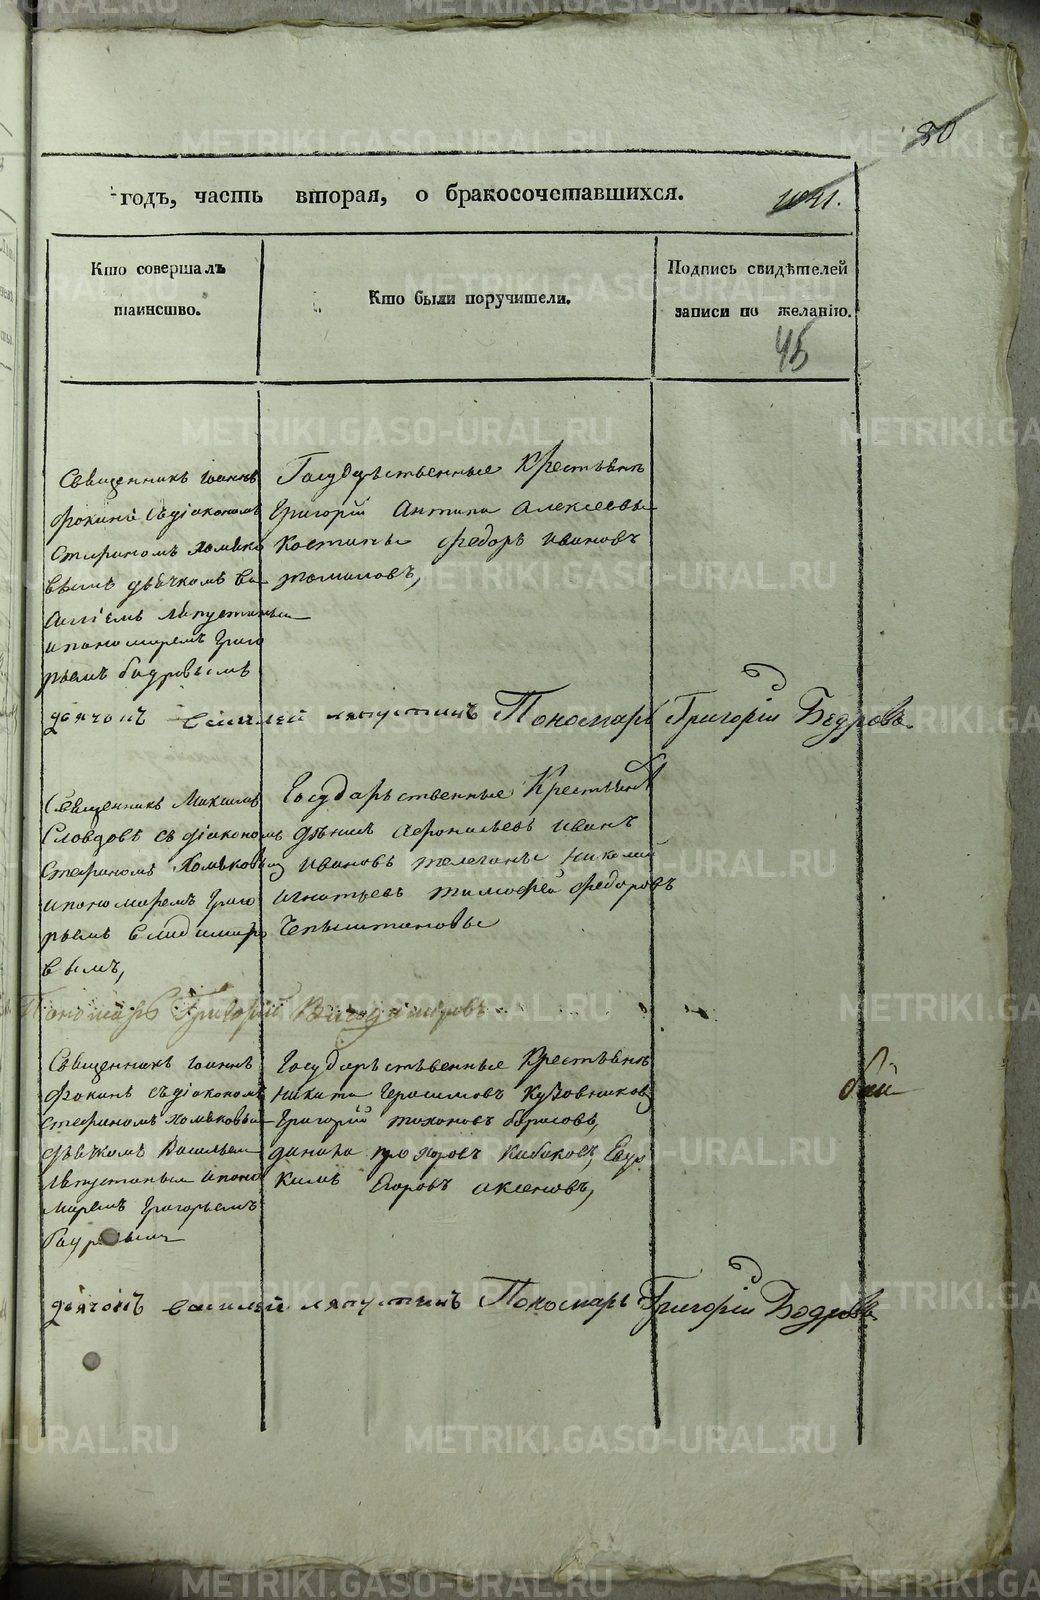 80
годъ, часть вторая, о бракосочетавшихся.
1041.
Кто совершалъ
таинство.
Кто были поручители.
Подпись свидѣтелей
записи по желанію.
45
Священникъ Іоаннъ
Фокинъ съ діакономъ
Стефаномъ Хомяко
вымъ дьячкомъ Ва
силіемъ Ляпустинымъ
и пономаремъ Григо
рьемъ Бодровымъ
Государственные Крестьяне
Григорій Антипа Алексеевы
Костины Федоръ Ивановъ
Томиловъ,
дьячокъ василей ляпустинъ Пономарь Григорій Бодровъ
Священникъ Максимъ
Словцовъ съ діакономъ
Стефаномъ Хомяковымъ
и пономаремъ Григо
рьемъ Владимиро
вымъ,
Государственные Крестьяне
Афонасьевъ Иванъ
Ивановъ Николай
Игнатьевъ Тимофей Федоровъ
Пономарь Григорій Владиміровъ
Священникъ Іоаннъ
Фокинъ съ діакономъ
Стефаномъ Хомяковымъ
дьячкомъ Васильемъ
Ляпустинымъ и поно
маремъ Григорьемъ
Бодровымъ
Государственные Крестьяне
Никита Герасимовъ Кузовниковъ
Григорій Тихоновъ Борисовъ,
Данило Кабаковъ, Евдо
кимъ Егоровъ Аксеновъ,
дьячокъ василей ляпустинъ Пономарь Григорій Бодровъ
METRIKI.GASO-URAL.RU